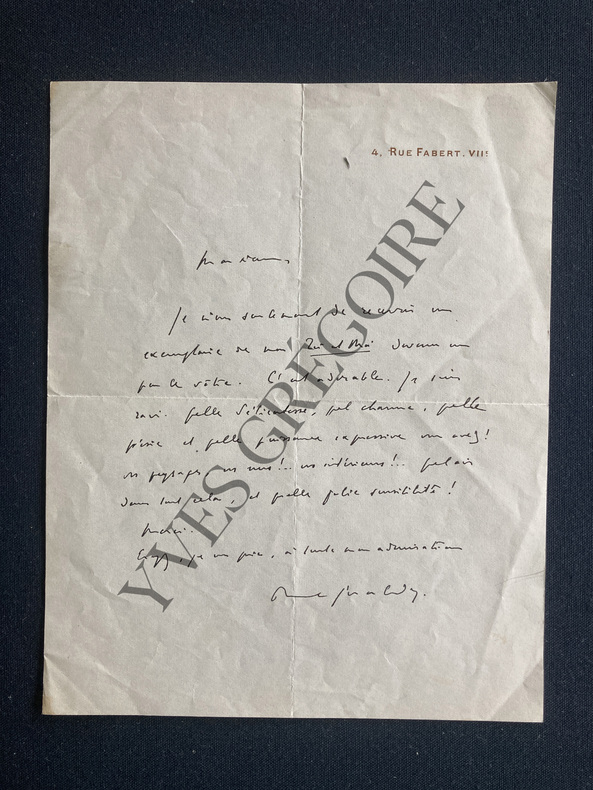 4, RUE FABERT. VIIE
Je viens seulement de recevoir un
exemplaire de mon Toi et Moi devenu un
peu le vôtre. C'est adorable. Je suis
ravi. Quelle délicatesse, quel charme, quelle
poésie et quelle puissance expressive vous avez!
vos paysages, vos nus!.. vos intérieurs!.. Quel air
dans tout cela, et quelle jolie sensibilité!
Merci.
je vous prie, à toute mon admiration
YVES GRÉGOIRE